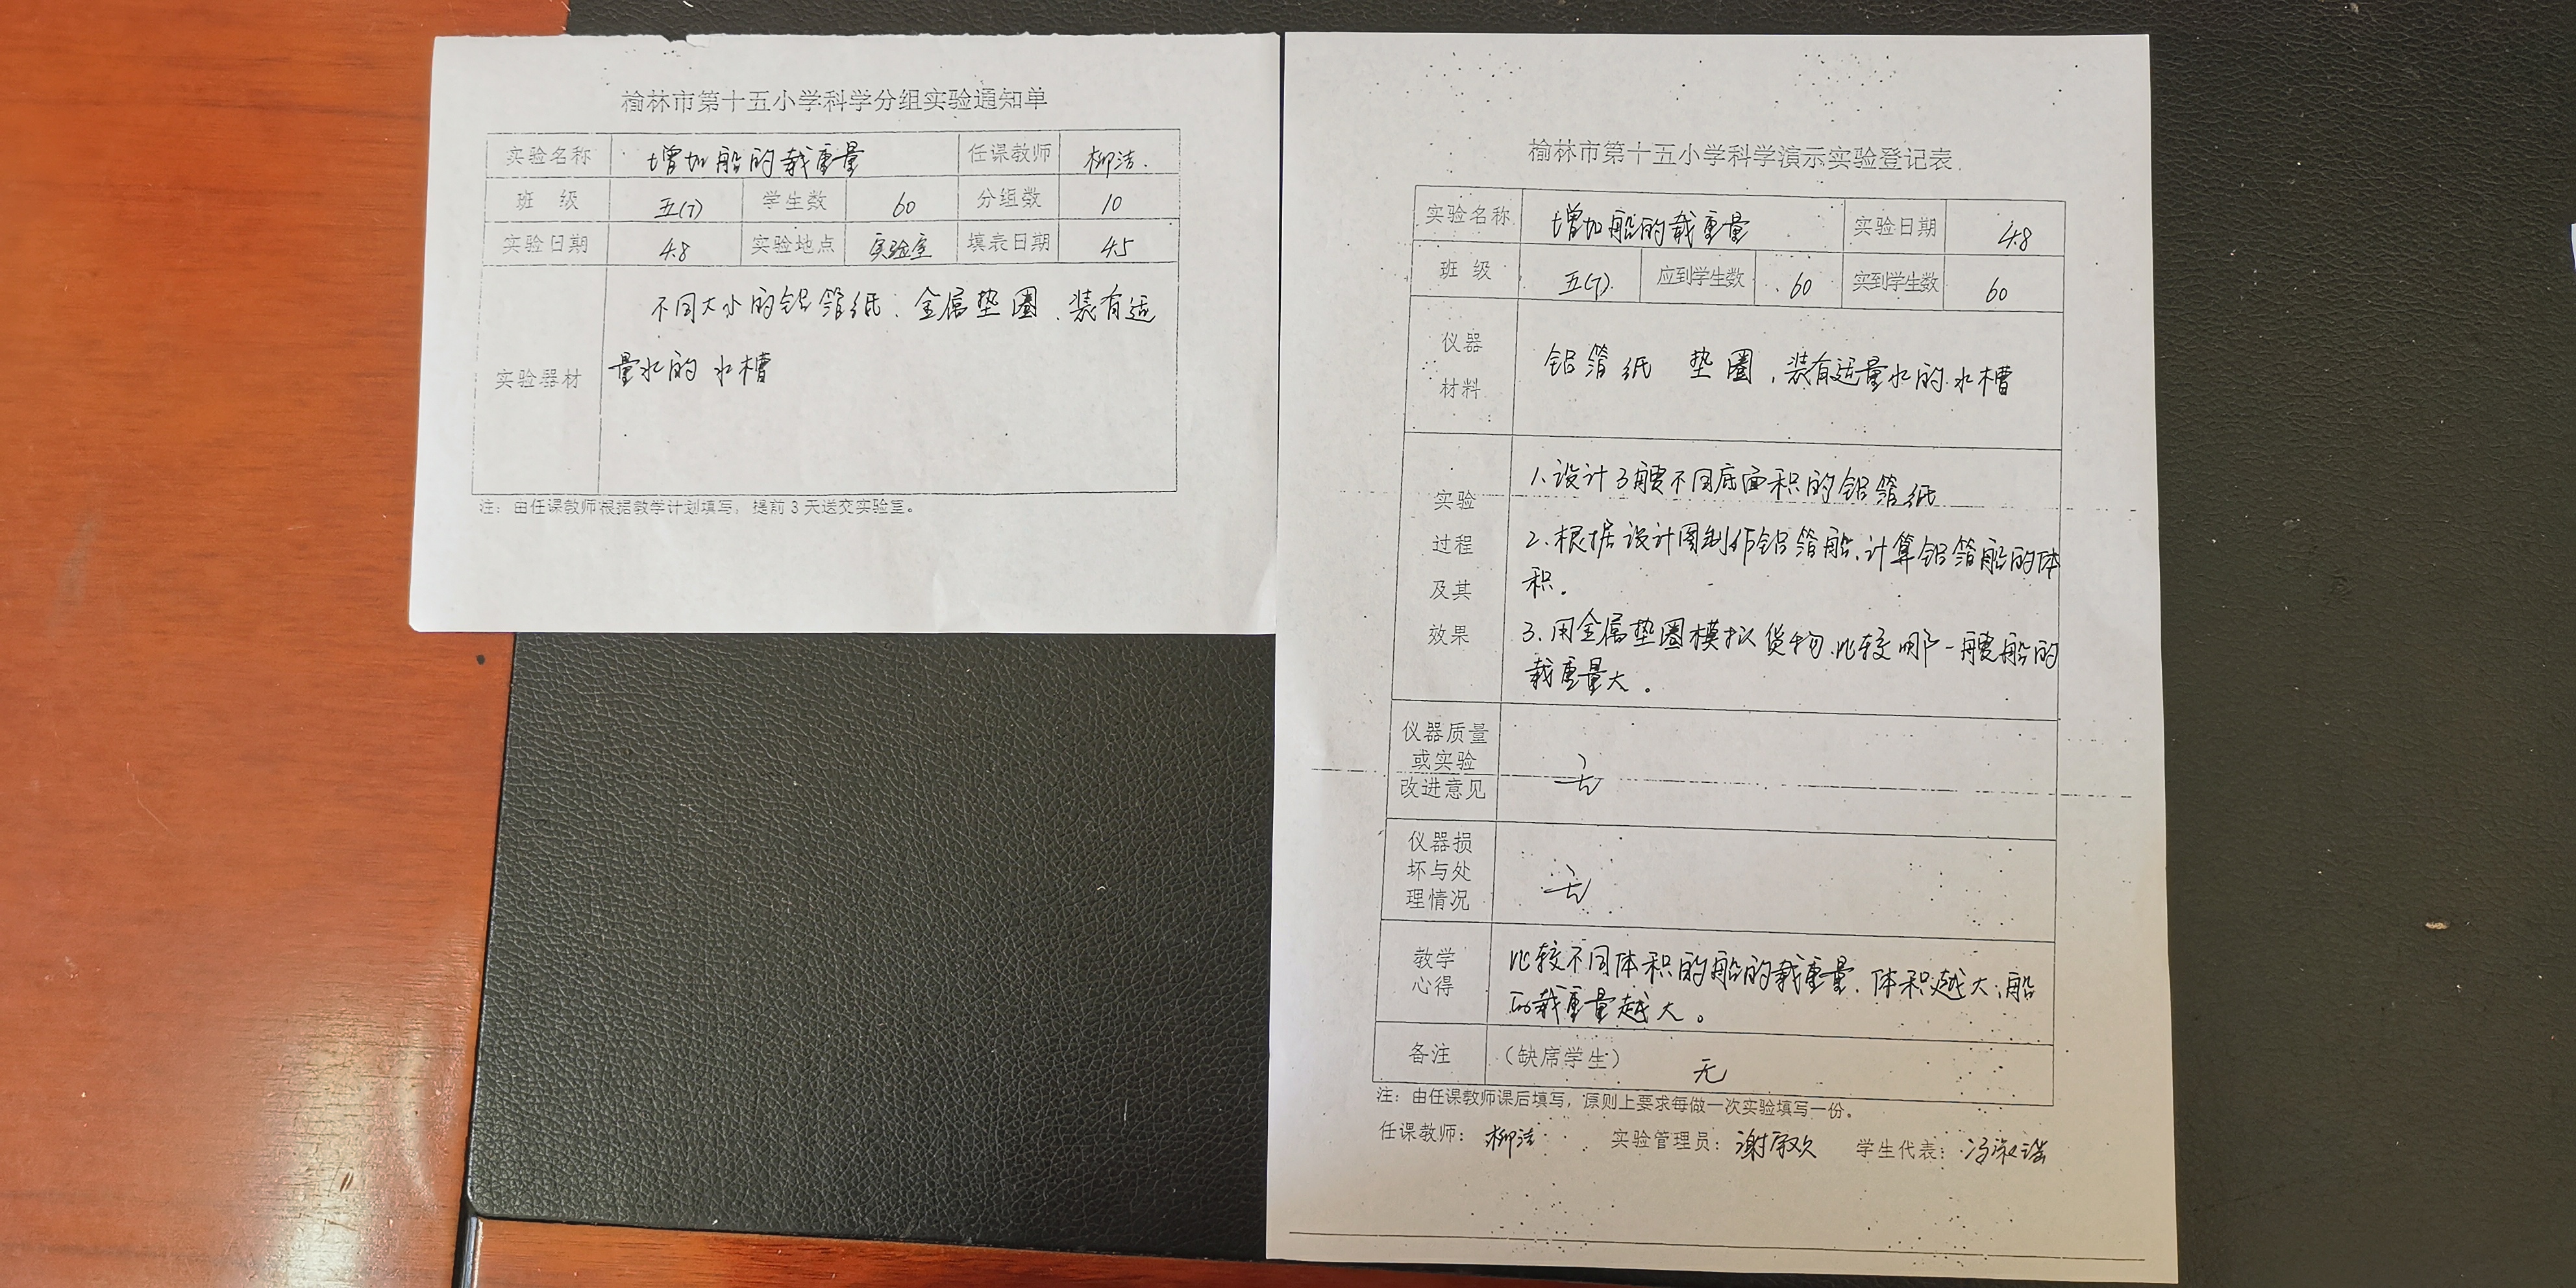 榆林市第十五小学科学分组实验通知单
实验名称 增加船的载重量 任课教师 柳洁.
班 级 五(7) 学生数 60 分组数 10
实验日期 4.8 实验地点 实验室 填表日期 4.5
不同大小的铝箔纸、金属垫圈、装有适
实验器材 量水的水槽
注：由任课教师根据教学计划填写，提前3天送交实验室。
榆林市第十五小学科学演示实验登记表
实验名称 增加船的载重量 实验日期 4.8
班 级 五(7). 应到学生数 60 实到学生数 60
仪器
材料
铝箔纸 垫圈、装有适量水的水槽
实验
过程
及其
效果
1、设计3艘不同底面积的铝箔纸
2、根据设计图制作铝箔船、计算铝箔船的体
积。
3、用金属垫圈模拟货物、比较哪一艘船的
载重量大。
仪器质量
或实验
改进意见
无
仪器损
坏与处
理情况
无
教学
心得
比较不同体积的船的载重量、体积越大，船
的载重量越大。
备注 （缺席学生） 无
注：由任课教师课后填写，原则上要求每做一次实验填写一份。
任课教师： 柳洁 实验管理员： 学生代表：